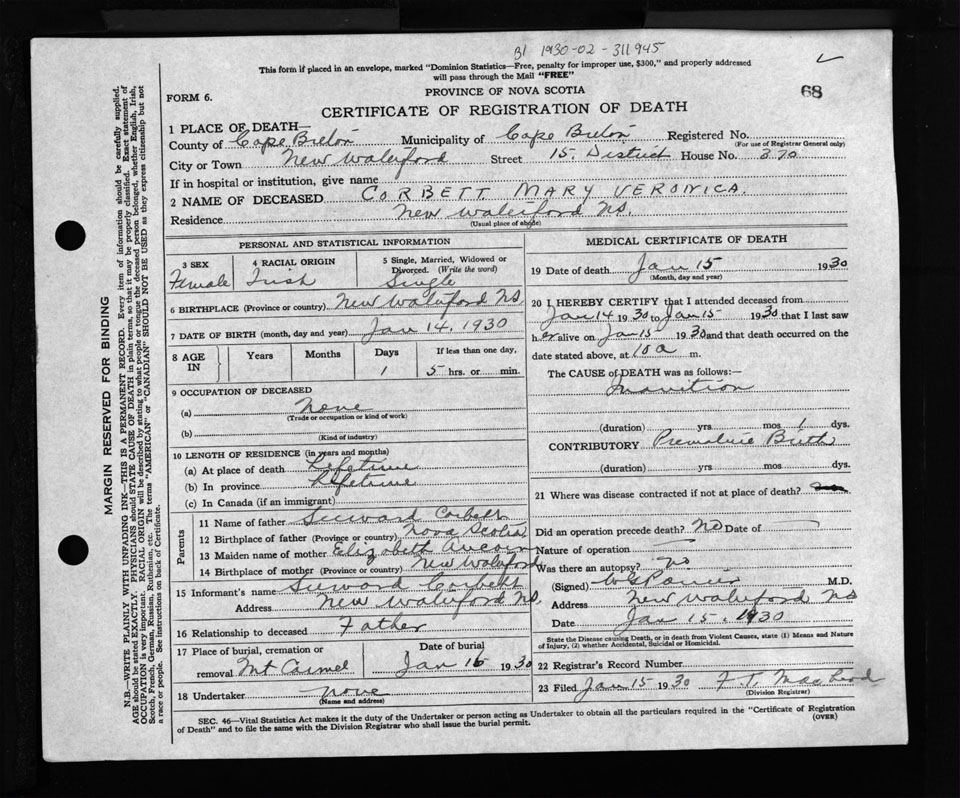 B1 1930-02-311945
This form if placed in an envelope, marked "Dominion Statistics—Free, penalty for improper use, $300," and properly addressed
will pass through the Mail "FREE"
FORM 6.
PROVINCE OF NOVA SCOTIA
68
CERTIFICATE OF REGISTRATION OF DEATH
1 PLACE OF DEATH—
County of Cape Breton Municipality of Cape Breton Registered No.
(For use of Registrar General only)
City or Town New Waterford Street 15. District House No. 370
If in hospital or institution, give name
2 NAME OF DECEASED CORBETT MARY VERONICA.
Residence New Waterford NS.
(Usual place of abode)
PERSONAL AND STATISTICAL INFORMATION
3 SEX 4 RACIAL ORIGIN 5 Single, Married, Widowed or
Divorced. (Write the word)
Female Irish Single
6 BIRTHPLACE (Province or country) New Waterford NS
7 DATE OF BIRTH (month, day and year) Jan 14, 1930
8 AGE IN Years Months Days If less than one day,
1 5 hrs. or min.
9 OCCUPATION OF DECEASED
(a) None
(Trade or occupation or kind of work)
(b)
(Kind of industry)
10 LENGTH OF RESIDENCE (in years and months)
(a) At place of death Lifetime
(b) In province Lifetime
(c) In Canada (if an immigrant)
Parents
11 Name of father Seward Corbett
12 Birthplace of father (Province or country) Nova Scotia
13 Maiden name of mother Elizabeth
14 Birthplace of mother (Province or country) New Waterford
15 Informant's name Seward Corbett
Address New Waterford NS,
16 Relationship to deceased Father
17 Place of burial, cremation or removal Mt Carmel
Date of burial
Jan 16 1930
18 Undertaker none
(Name and address)
MEDICAL CERTIFICATE OF DEATH
19 Date of death Jan 15 1930
(Month, day and year)
20 I HEREBY CERTIFY that I attended deceased from
Jan 14 1930 to Jan 15 1930 that I last saw
her alive on Jan 15 1930 and that death occurred on the
date stated above, at 10 a m.
The CAUSE of DEATH was as follows:—
Inanition
(duration) yrs mos 1 dys.
CONTRIBUTORY Premature Birth
(duration) yrs. mos. dys.
21 Where was disease contracted if not at place of death?
Did an operation precede death? No Date of
Nature of operation
Was there an autopsy? No
(Signed) M.D.
Address New Waterford NS
Date Jan 15, 1930
State the Disease causing Death, or in death from Violent Causes, state (1) Means and Nature
of Injury, (2) whether Accidental, Suicidal or Homicidal.
22 Registrar's Record Number
23 Filed Jan 15 1930 F. T. MacLeod
(Division Registrar)
SEC. 46—Vital Statistics Act makes it the duty of the Undertaker or person acting as Undertaker to obtain all the particulars required in the "Certificate of Registration
of Death" and to file the same with the Division Registrar who shall issue the burial permit.
(OVER)
MARGIN RESERVED FOR BINDING
N.B.—WRITE PLAINLY WITH UNFADING INK—THIS IS A PERMANENT RECORD. Every item of information should be carefully supplied.
AGE should be stated EXACTLY. PHYSICIANS should STATE CAUSE OF DEATH in plain terms, so that it may be properly classified. Exact statement of
OCCUPATION is very important. RACIAL ORIGIN will be described by stating to what people or tongue the deceased person belonged, whether English, Irish,
Scotch, French, German, Russian, Ruthenian, etc. The terms "AMERICAN" or "CANADIAN" SHOULD NOT BE USED as they express citizenship but not
a race or people. See instructions on back of Certificate.